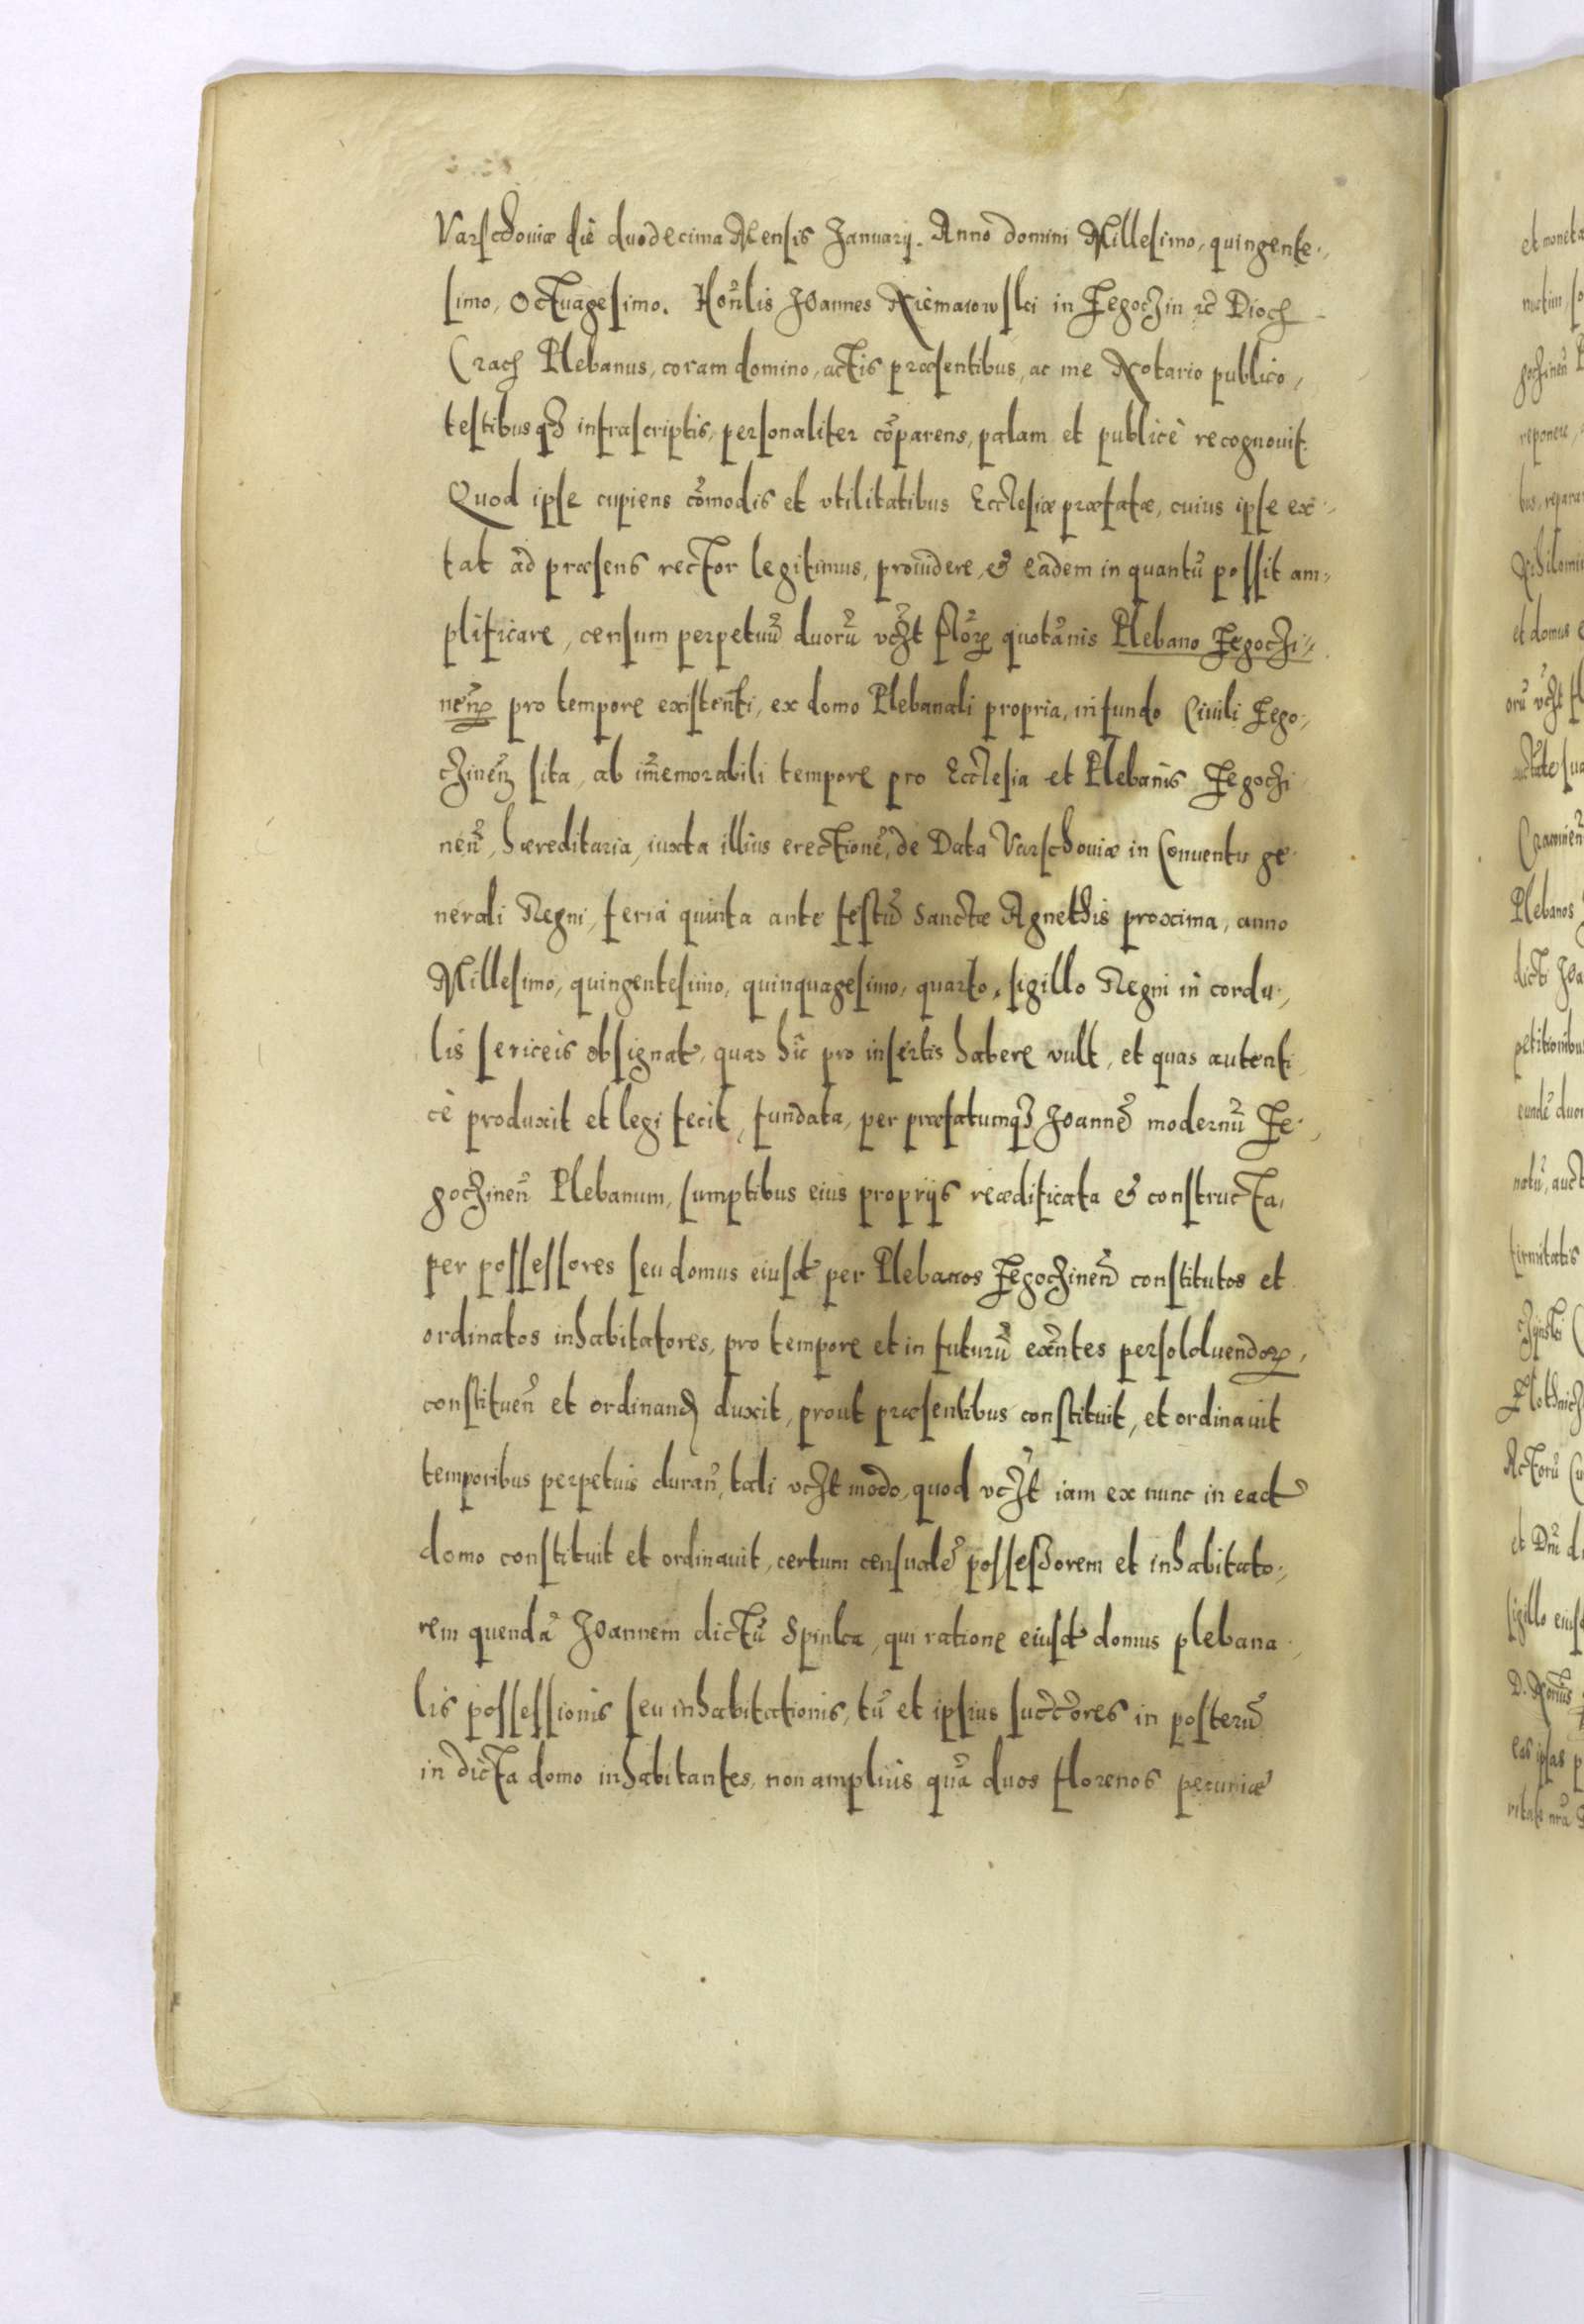 Varschouiæ die duodecima Mensis Januarij. Anno domini Millesimo, quingente-
simo, Octuagesimo. Hon̄lis Joannes Niemaiowski in Fegoczin etc Dioc
Crac Plebanus, coram domino, actis præsentibus, ac me Notario publico,
testibusqȝ infrascriptis, personaliter cōparens, palam et publicè recognouit.
Quod ipse cupiens cōmodis et vtilitatibus Ecclesiæ præfatæ, cuius ipse ex-
tat ad præsens rector legitimus, prouidere, & eadem in quantū possit am-
plificare, censum perpetuū duorū vczt flor quotānis Plebano Fegoczi-
nen pro tempore existenti, ex domo Plebanali propria, in fundo Ciuili Fego-
czinen sita, ab im̄emorabili tempore pro Ecclesia et Plebanis Fegoczi
nen̄, hæreditaria, iuxta illius erectionē, de Data Varschouiæ in Conuentu ge-
nerali Regni, feria quinta ante festū Sanctæ Agnethis proxima, anno
Millesimo, quingentesimo, quinquagesimo, quarto, sigillo Regni in cordu-
lis sericeis obsignat, quas hic pro insertis habere vult, et quas autenti
cè produxit et legi fecit, fundata, per præfatumqȝ Joannē modernū Fe-
goczinen̄ Plebanum, sumptibus eius proprijs reædificata & constructa,
per possessores seu domus eiusd per Plebanos Fegoczinen̄ constitutos et
ordinatos inhabitatores, pro tempore et in futurū exn̄tes persolduendor,
constituen̄ et ordinand duxit, prout præsentibus constituit, et ordinauit
temporibus perpetuis duran̄, tali vczt modo, quod vczt iam ex nunc in ead
domo constituit et ordinauit, certum censualē possessorem et inhabitato-
rem quendā Joannem dictū Spinka, qui ratione eiusd domus plebana-
lis possessionis seu inhabitationis, tū et ipsius succores in posterū
in dicta domo inhabitantes, non amplius quā duos florenos pecuniæ